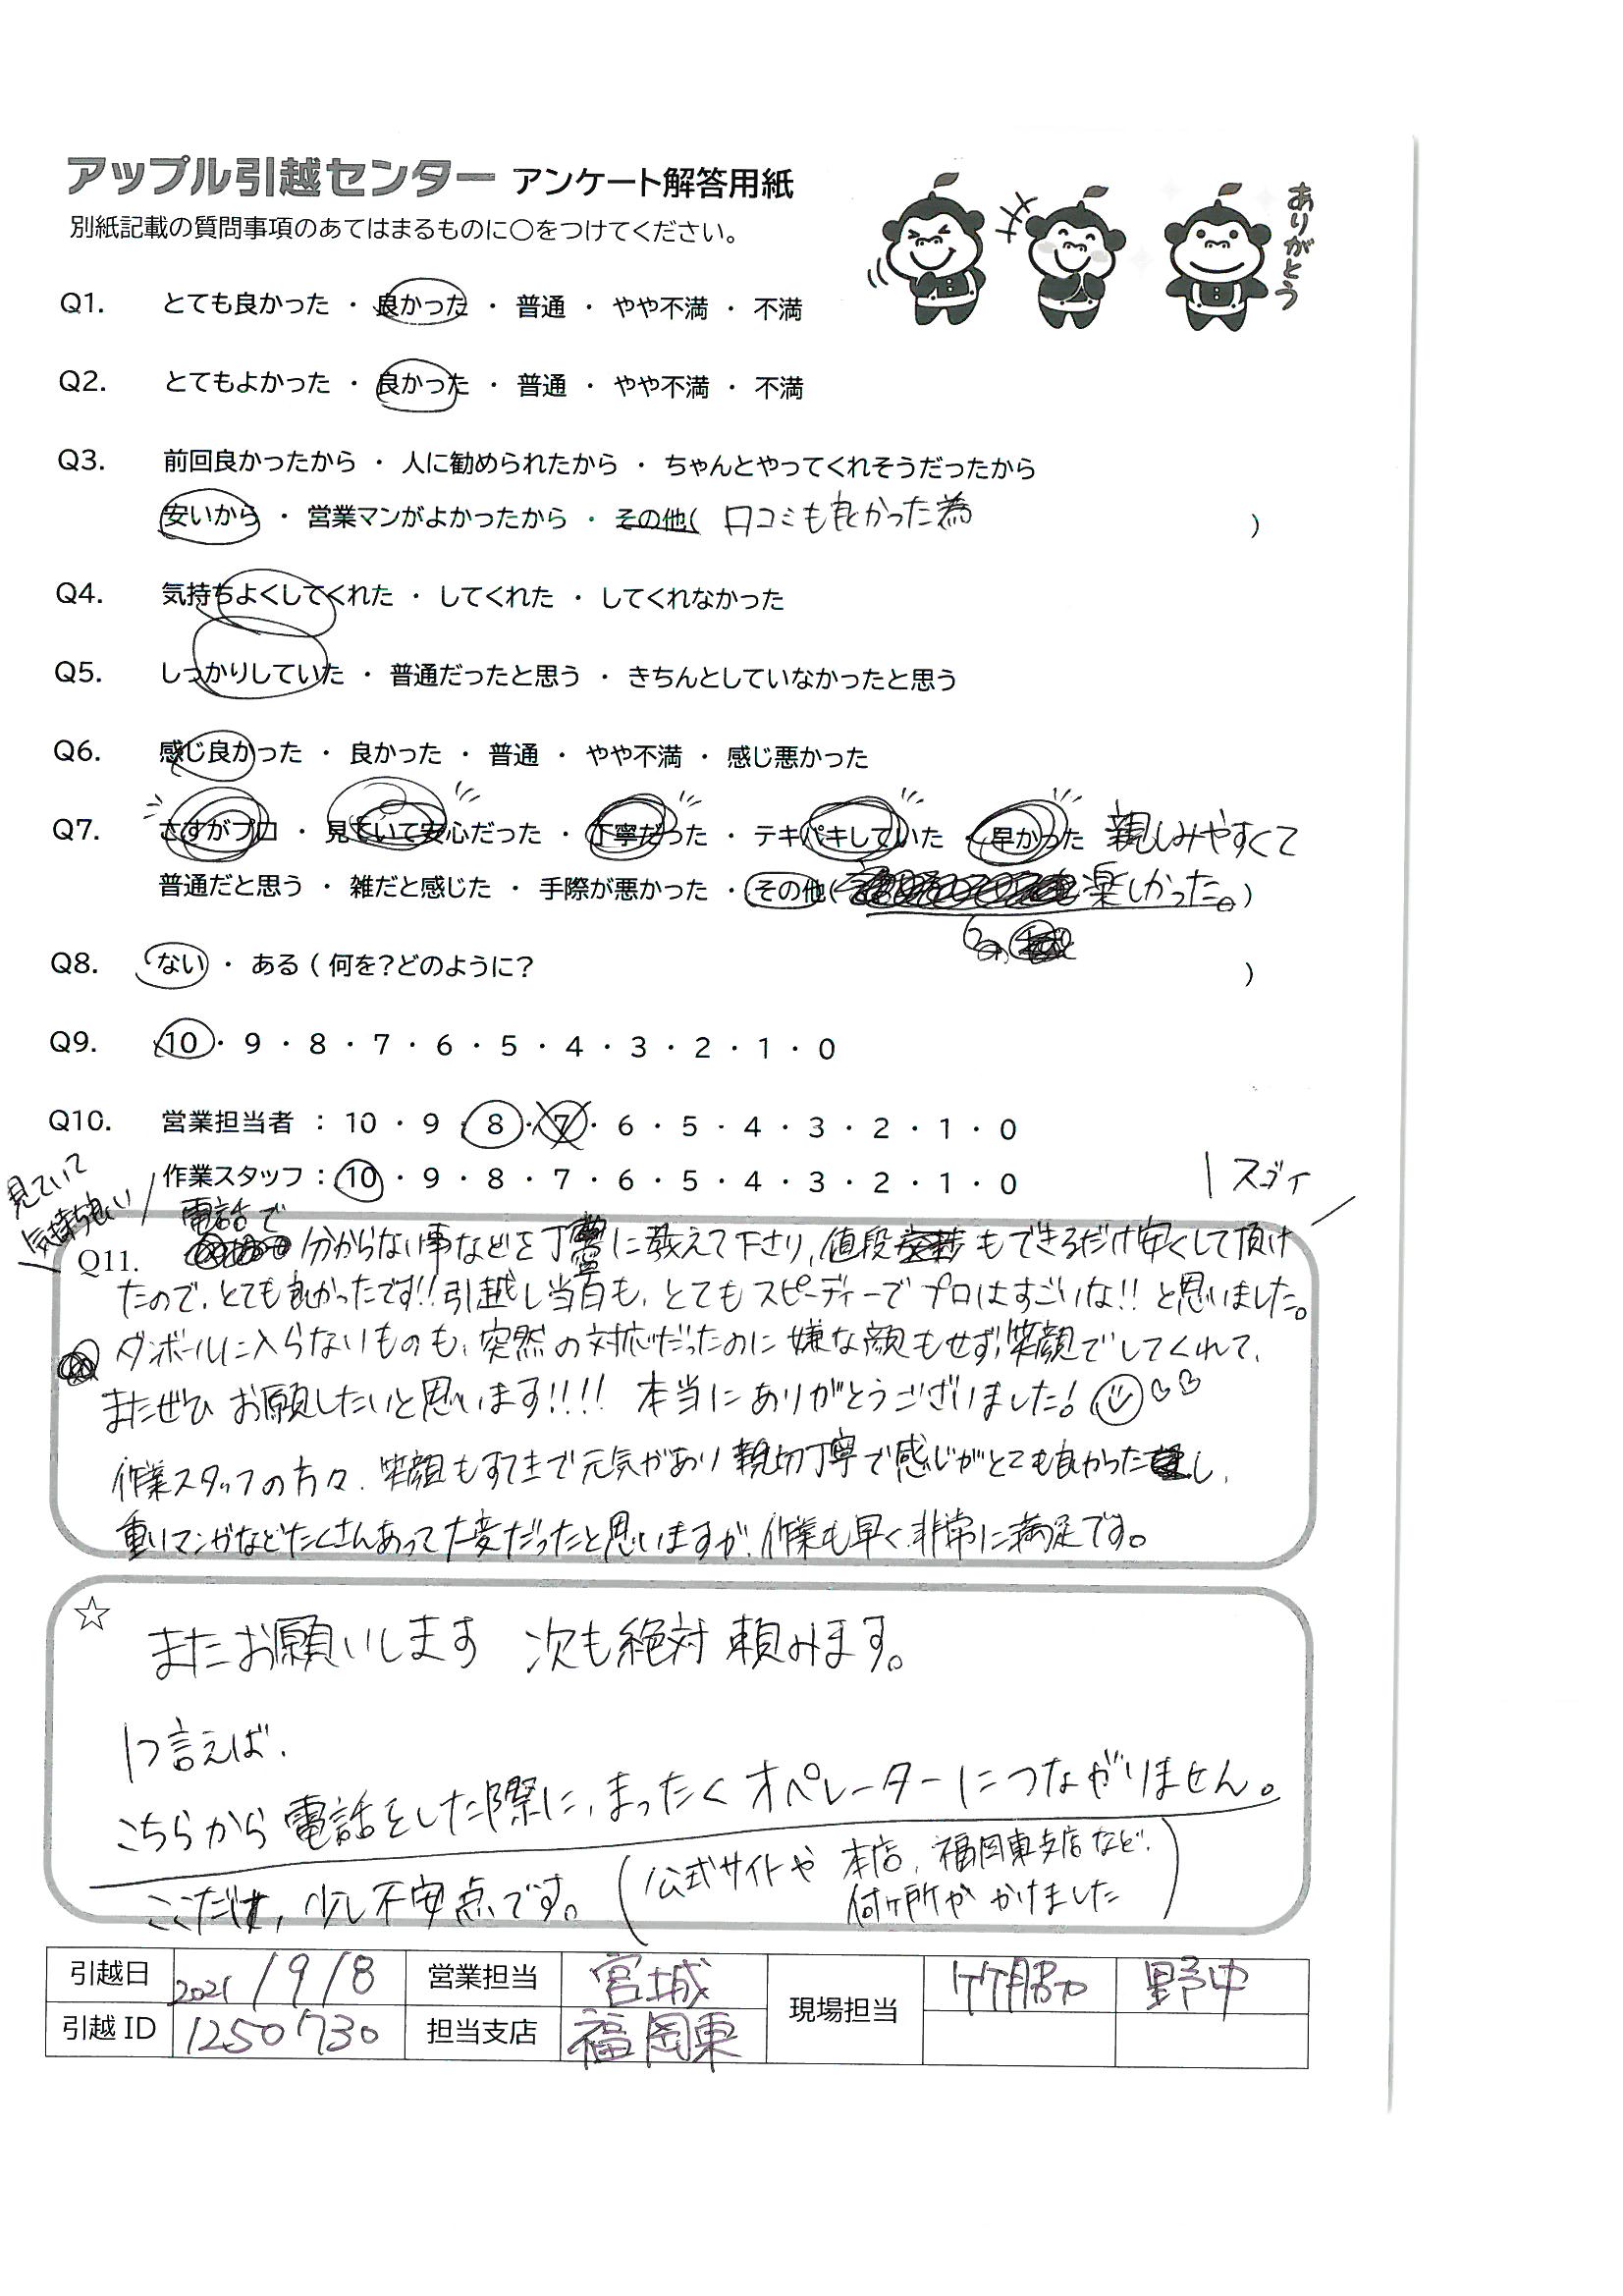 アップル引越センター アンケート解答用紙
ありがとう
別紙記載の質問事項のあてはまるものに○をつけてください。
Q1. とても良かった ・ 良かった ・ 普通 ・ やや不満 ・ 不満
Q2. とてもよかった ・ 良かった ・ 普通 ・ やや不満 ・ 不満
Q3. 前回良かったから ・ 人に勧められたから ・ ちゃんとやってくれそうだったから
安いから ・ 営業マンがよかったから ・ その他( 口コミも良かった為 )
Q4. 気持ちよくしてくれた ・ してくれた ・ してくれなかった
Q5. しっかりしていた ・ 普通だったと思う ・ きちんとしていなかったと思う
Q6. 感じ良かった ・ 良かった ・ 普通 ・ やや不満 ・ 感じ悪かった
Q7. さすがプロ ・ 見ていて安心だった ・ 丁寧だった ・ テキパキしていた ・ 早かった 親しみやすくて
普通だと思う ・ 雑だと感じた ・ 手際が悪かった ・ その他( 楽しかった。)
Q8. ない ・ ある ( 何を?どのように? )
Q9. 10 ・ 9 ・ 8 ・ 7 ・ 6 ・ 5 ・ 4 ・ 3 ・ 2 ・ 1 ・ 0
Q10. 営業担当者 : 10 ・ 9 ・ 8 ・ 7 ・ 6 ・ 5 ・ 4 ・ 3 ・ 2 ・ 1 ・ 0
作業スタッフ : 10 ・ 9 ・ 8 ・ 7 ・ 6 ・ 5 ・ 4 ・ 3 ・ 2 ・ 1 ・ 0
スゴイ
見ていて
気持ち良い
電話で
Q11. 分からない事などを丁寧に教えて下さり、値段交渉もできるだけ安くして頂け
たので、とても良かったです!!引越し当日も、とてもスピーディーでプロはすごいな!!と思いました。
ダンボールに入らないものも、突然の対応だったのに嫌な顔もせず、笑顔でしてくれて、
またぜひ お願いしたいと思います!!!! 本当にありがとうございました!
作業スタッフの方々、笑顔もすてきで元気があり 親切丁寧で感じがとても良かったし、
重いマンガなどたくさんあって大変だったと思いますが、作業も早く、非常に満足です。
☆ またお願いします 次も絶対 頼みます。
1つ言えば、
こちらから電話をした際に、まったくオペレーターにつながりません。
ここだけ、少し不安点です。(公式サイトや 本店、福岡東支店など、
何ヶ所か かけました)
引越日 2021 / 9 / 8 営業担当 宮城 現場担当 竹勝 野中
引越 ID 1250730 担当支店 福岡東